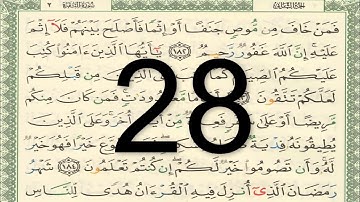 فَمَنْ خَافَ مِن مُّوصٍ جَنَفًا أَوْ إِثْمًا فَأَصْلَحَ بَيْنَهُمْ فَلَآ إِثْمَ
عَلَيْهِ إِنَّ ٱللَّهَ غَفُورٌ رَّحِيمٌ ١٨٢ يَٰٓأَيُّهَا ٱلَّذِينَ ءَامَنُوا۟ كُتِبَ
عَلَيْكُمُ ٱلصِّيَامُ ٱلَّذِينَ مِن قَبْلِكُمْ
لَعَلَّكُمْ تَتَّقُونَ مَّعْدُودَٰتٍ فَمَن كَانَ مِنكُم
مَّرِيضًا أَوْ أُخَرَ وَعَلَى ٱلَّذِينَ
يُطِيقُونَهُۥ فِدْيَةٌ خَيْرًا فَهُوَ خَيْرٌ
لَّهُۥ وَأَن تَصُومُوا۟ خَيْرٌ لَّكُمْ إِن كُنتُمْ تَعْلَمُونَ ١٨٤ شَهْرُ
رَمَضَانَ ٱلَّذِىٓ أُنزِلَ فِيهِ ٱلْقُرْءَانُ هُدًى لِّلنَّاسِ
28